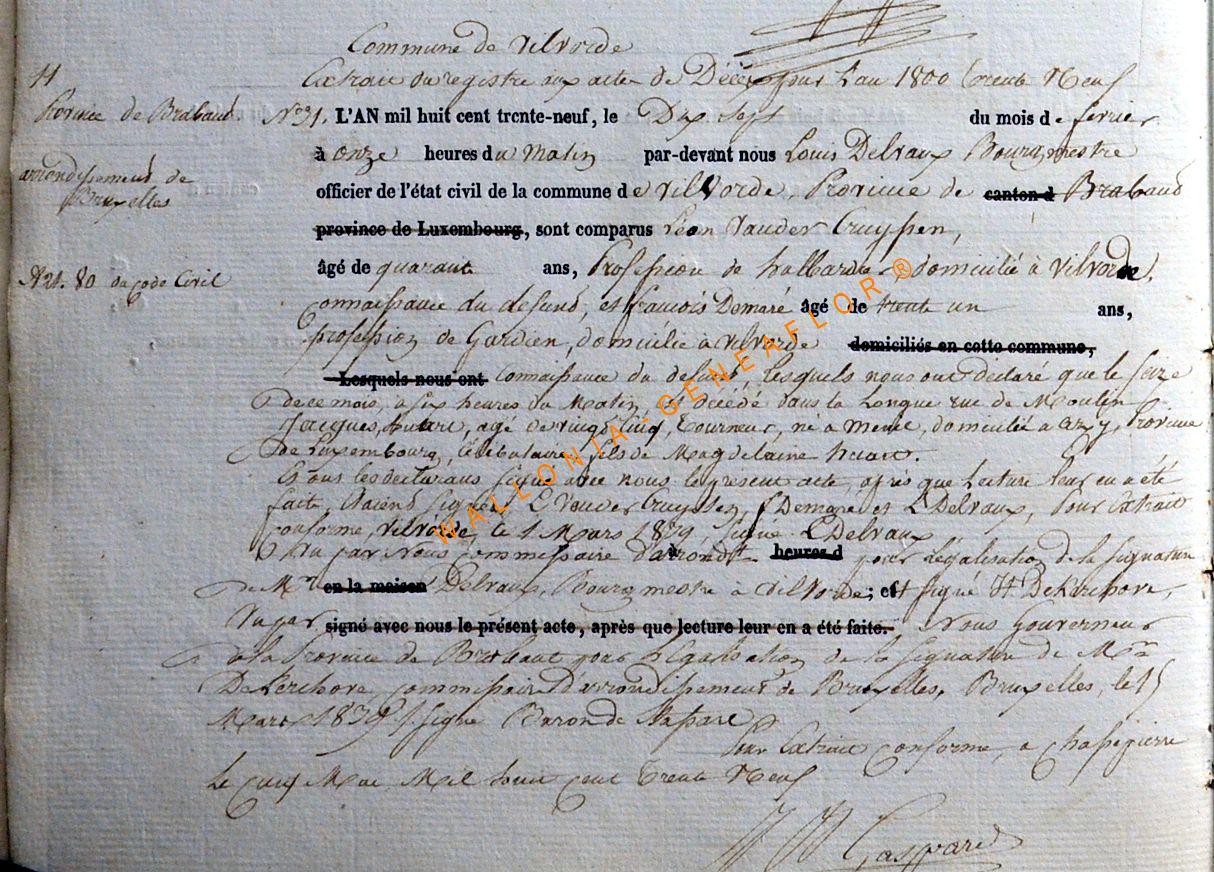 Commune de Vilvorde
11
Extrait du registre aux actes de Décès pour L'an 1800 trente Neuf
Province de Braband. N° 31. L'AN mil huit cent trente-neuf, le Dix Sept du mois de février
à onze heures du Matin par-devant nous Louis Delvaux Bourgmestre
arrondissement de
Bruxelles
officier de l'état civil de la commune de Vilvorde, Province de canton d Braband
province de Luxembourg, sont comparus Léon Vander Cruyssen,
Art. 80 du code Civil
âgé de quarante ans, Profession de domicilié à Vilvorde,
connaissance du defund, et francois Demaré âgé de trente un ans,
profession de Gardien, domicilié à Vilvorde domiciliés en cette commune,
Lesquels nous ont connaissance du defund, lesquels nous ont declaré que le Seize
de ce mois, à six heures du Matin, est decedé dans la Longue rue de Moulin
Jacques, huart, agé de vingt cinq, Tourneur, né à domicilié à Province
de Luxembourg, Célibataire, fils de Magdelaine huart.
Et ont les declarans signé avec nous le présent acte, après que Lecture leur en a été
faite, étaient signés L. Vander Cruyssen, f Demaré et L Delvaux, Pour Extrait
conforme, Vilvorde, le 1 Mars 1839, Signé L Delvaux
Vu par Nous Commissaire d'arrondt à heures d pour Légalisation de la signature
de Mr en la maison Delvaux, Bourgmestre à Vilvorde; est signé Dekerchove,
Vu par signé avec nous le présent acte, après que lecture leur en a été faite. Nous Gouverneur
de la Province de Brabant pour légalisation de la signature de Mr
Dekerchove, commissaire d'arrondissement de Bruxelles. Bruxelles, le 15
Mars 1839. Signé Baron de
Pour Extrait conforme, a Chassepierre
Le cinq Mai Mil huit cent Trente Neuf
Gaspard
WALLONIA-GENEAFLOR®